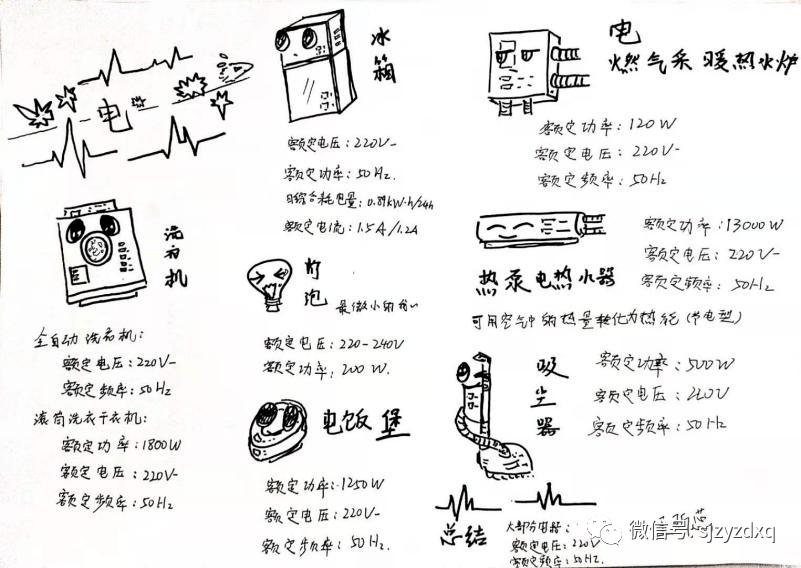 电
冰箱
额定电压：220V~
额定功率：50Hz.
日综合耗电量：0.89kW·h/24h
额定电流：1.5A/1.2A
电
燃气采暖热水炉
额定功率：120W
额定电压：220V~
额定频率：50Hz
洗衣机
全自动洗衣机：
额定电压：220V~
额定频率：50Hz
滚筒洗衣干衣机：
额定功率：1800W
额定电压：220V~
额定频率：50Hz
灯泡
最微小的我~
额定电压：220-240V
额定功率：200W.
电饭堡
额定功率：1250W
额定电压：220V~
额定频率：50Hz.
热泵电热水器
额定功率：13000W
额定电压：220V~
额定频率：50Hz
可用空气中的热量转化为热能（节电型）
吸尘器
额定功率：500W
额定电压：220V
额定频率：50Hz
总结
大部分电器：
额定电压：220V
额定频率：50Hz.
微信号：sjzyzdxq